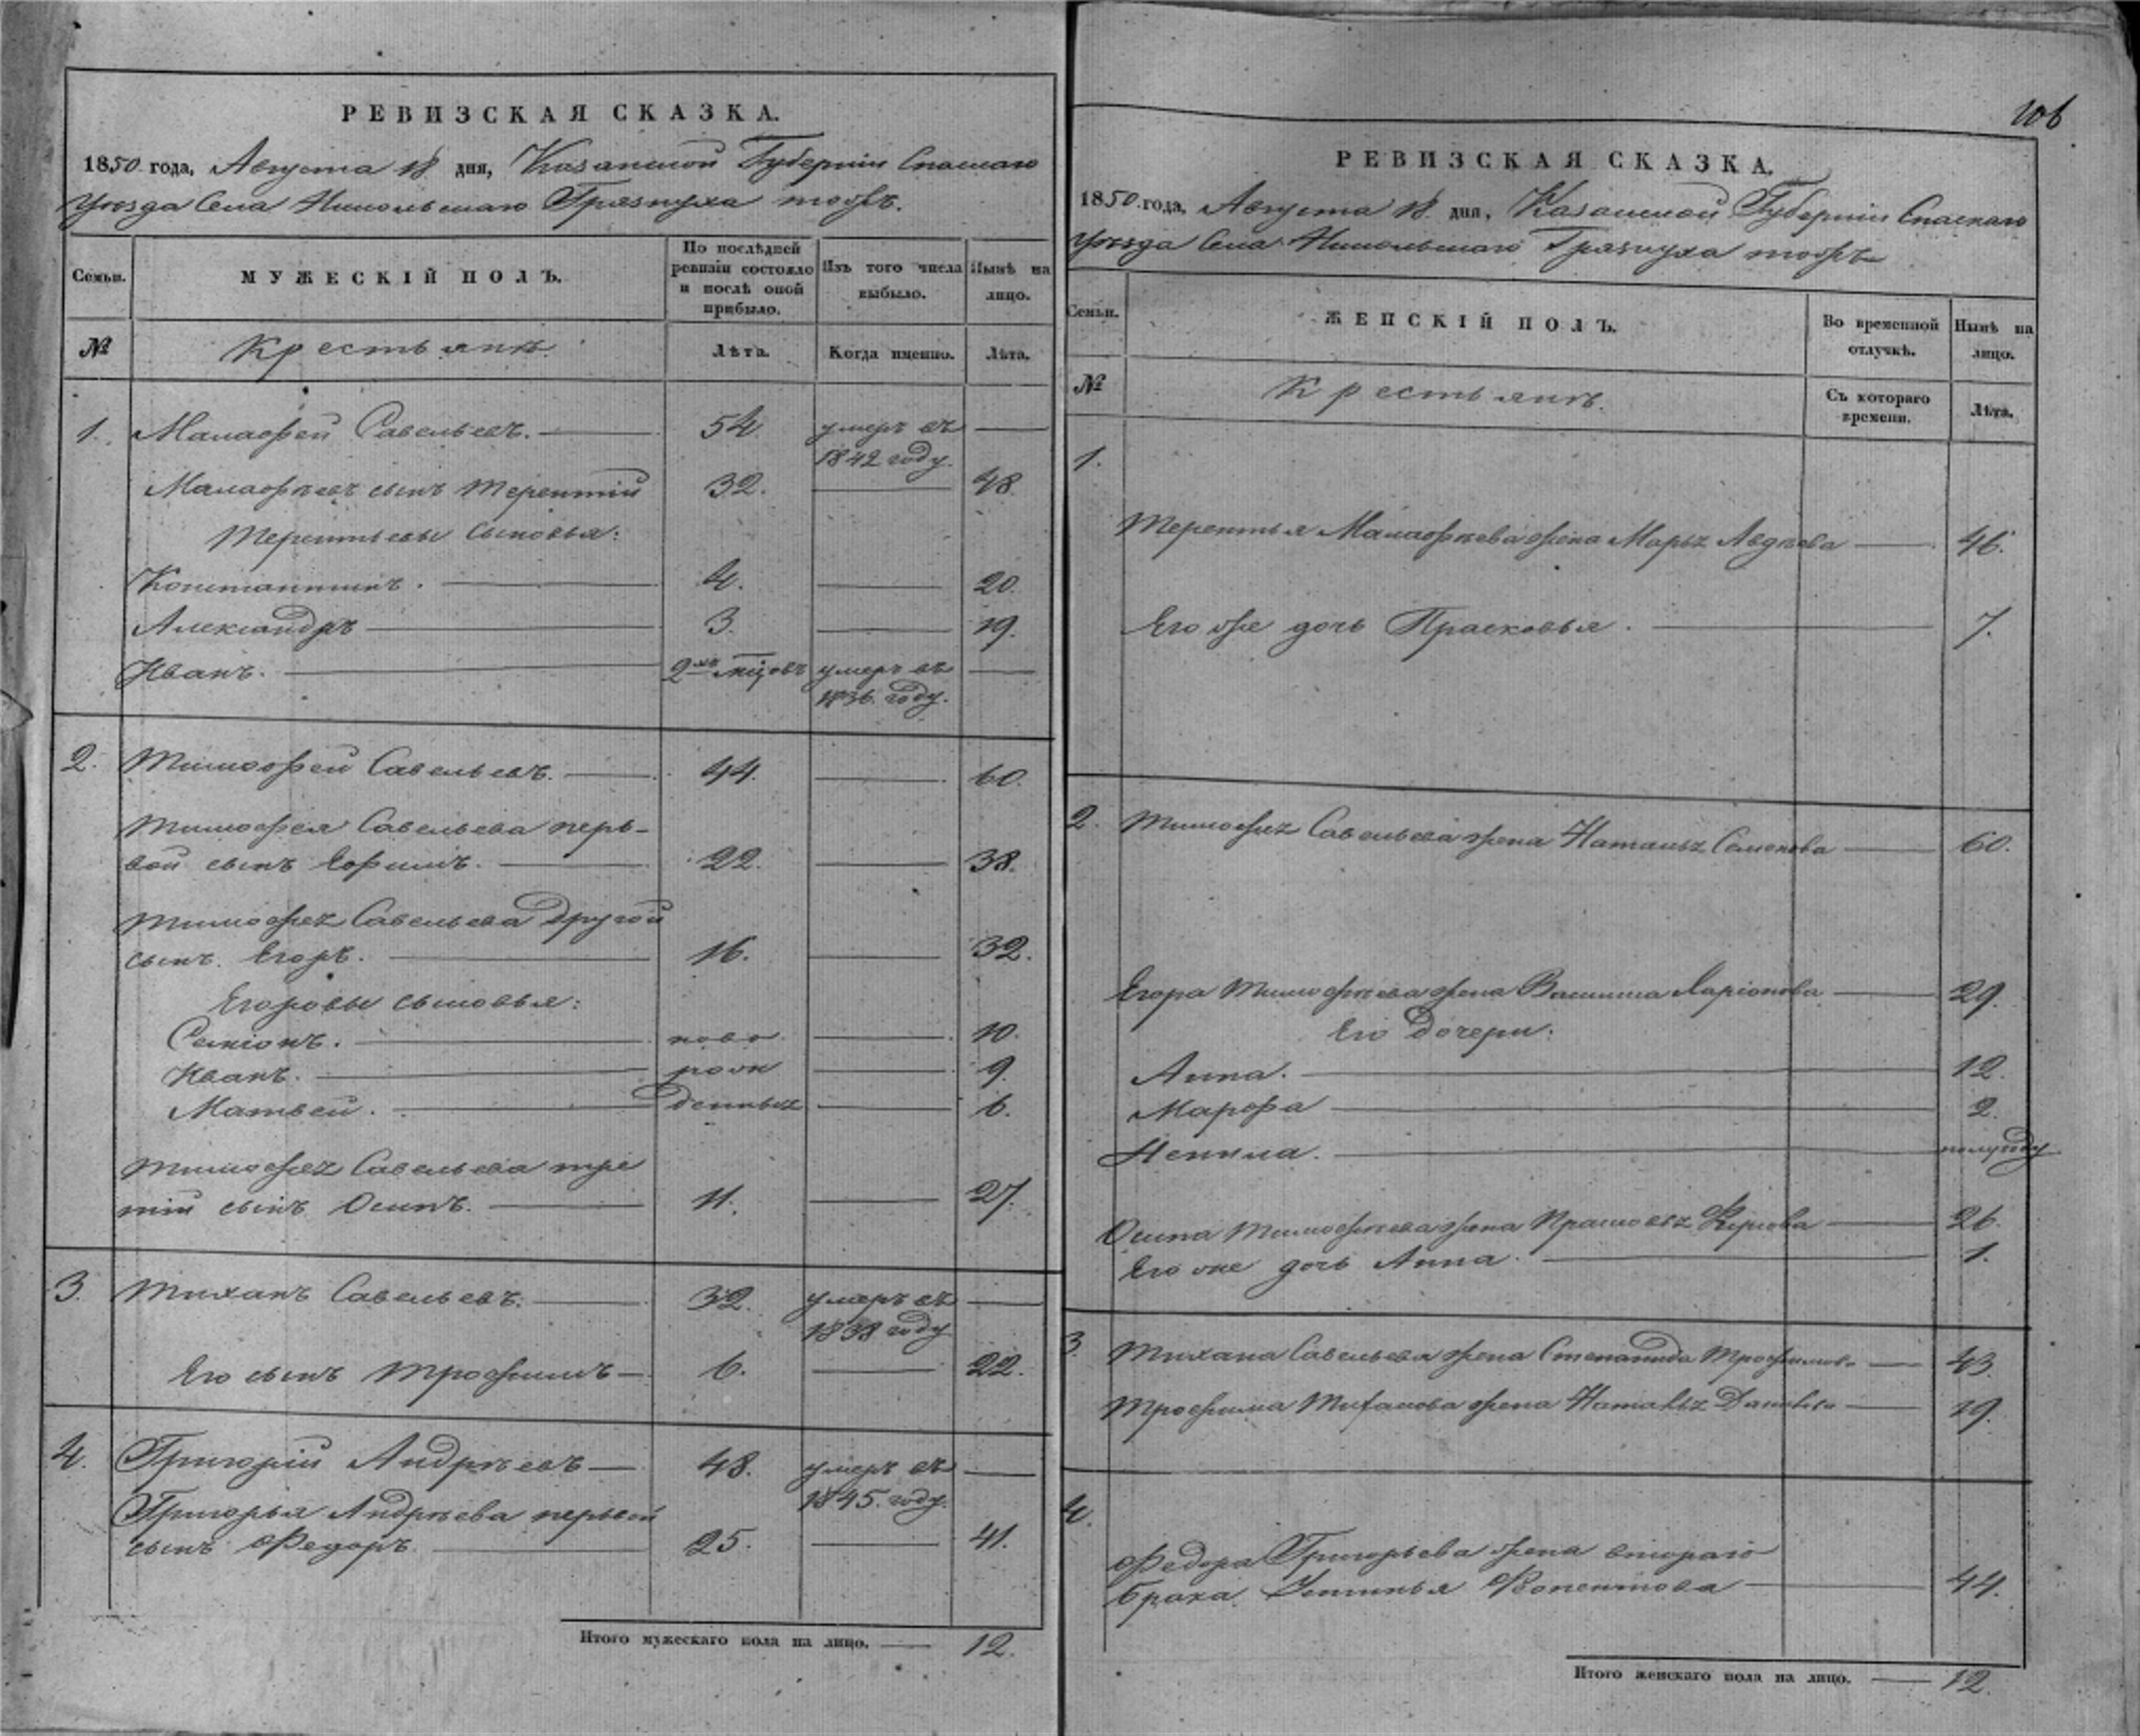 РЕВИЗСКАЯ СКАЗКА.
1850 года, Августа 18 дня, Казанской Губернии Спаскаго
Уѣзда Села Никольскаго Грязнуха тожъ.
Семьи.
МУЖЕСКІЙ ПОЛЪ.
По послѣдней ревизіи состояло и послѣ оной прибыло.
Изъ того числа выбыло.
Нынѣ на лицо.
№ Крестьянъ Лѣта. Когда именно. Лѣта.
1. Малафей Савельевъ. 54 умеръ въ
1842 году.
Малафѣевъ сынъ Терентій 32. 48.
Терентьевы сыновья:
Константинъ. 4. 20.
Александръ 3. 19.
Иванъ. 2хъ мцовъ умеръ въ
1836. году.
2. Тимофей Савельевъ. 44. 60.
Тимофея Савельева перь-
вой сынъ Ефимъ. 22. 38.
Тимофея Савельева другой
сынъ Егоръ. 16. 32.
Егоровы сыновья:
Семіонъ. ново 10.
Иванъ. рож 9.
Матвей. денныхъ 6.
Тимофея Савельева тре
тій сынъ Осипъ. 11. 27.
3. Тиханъ Савельевъ. 32. умеръ въ
1838 году
Его сынъ Трофимъ 6. 22.
4. Григорій Андрѣевъ 48. умеръ въ
1845. году.
Григорья Андрѣева первой
сынъ Федоръ 25. 41.
Итого мужескаго пола на лицо. 12.
106
РЕВИЗСКАЯ СКАЗКА.
1850. года, Августа 18. дня, Казанской Губерніи Спаскаго
Уѣзда Села Никольскаго Грязнуха тожъ
Семьи.
ЖЕНСКІЙ ПОЛЪ.
Во временной отлучкѣ.
Нынѣ на лицо.
№ Крестьянъ. Съ котораго времени. Лѣта.
1.
Терентья Малафѣева жена Марья Авдѣева 46.
Его же дочь Прасковья. 7.
2. Тимофея Савельева жена Наталья Семенова 60.
Егора Тимофѣева жена Василиса Ларіонова 29.
Его дочери:
Анна. 12.
Марфа 2.
Ненила. полугоду
Осипа Тимофѣева жена Прасковья 26.
Его же дочь Анна. 1.
3. Тихана Савельева жена Степанида Трофимова 43.
Трофима Тиханова жена Наталья Данилова 19.
4.
Федора Григорьева жена втораго
брака Устинья 44.
Итого женскаго пола на лицо. 12.